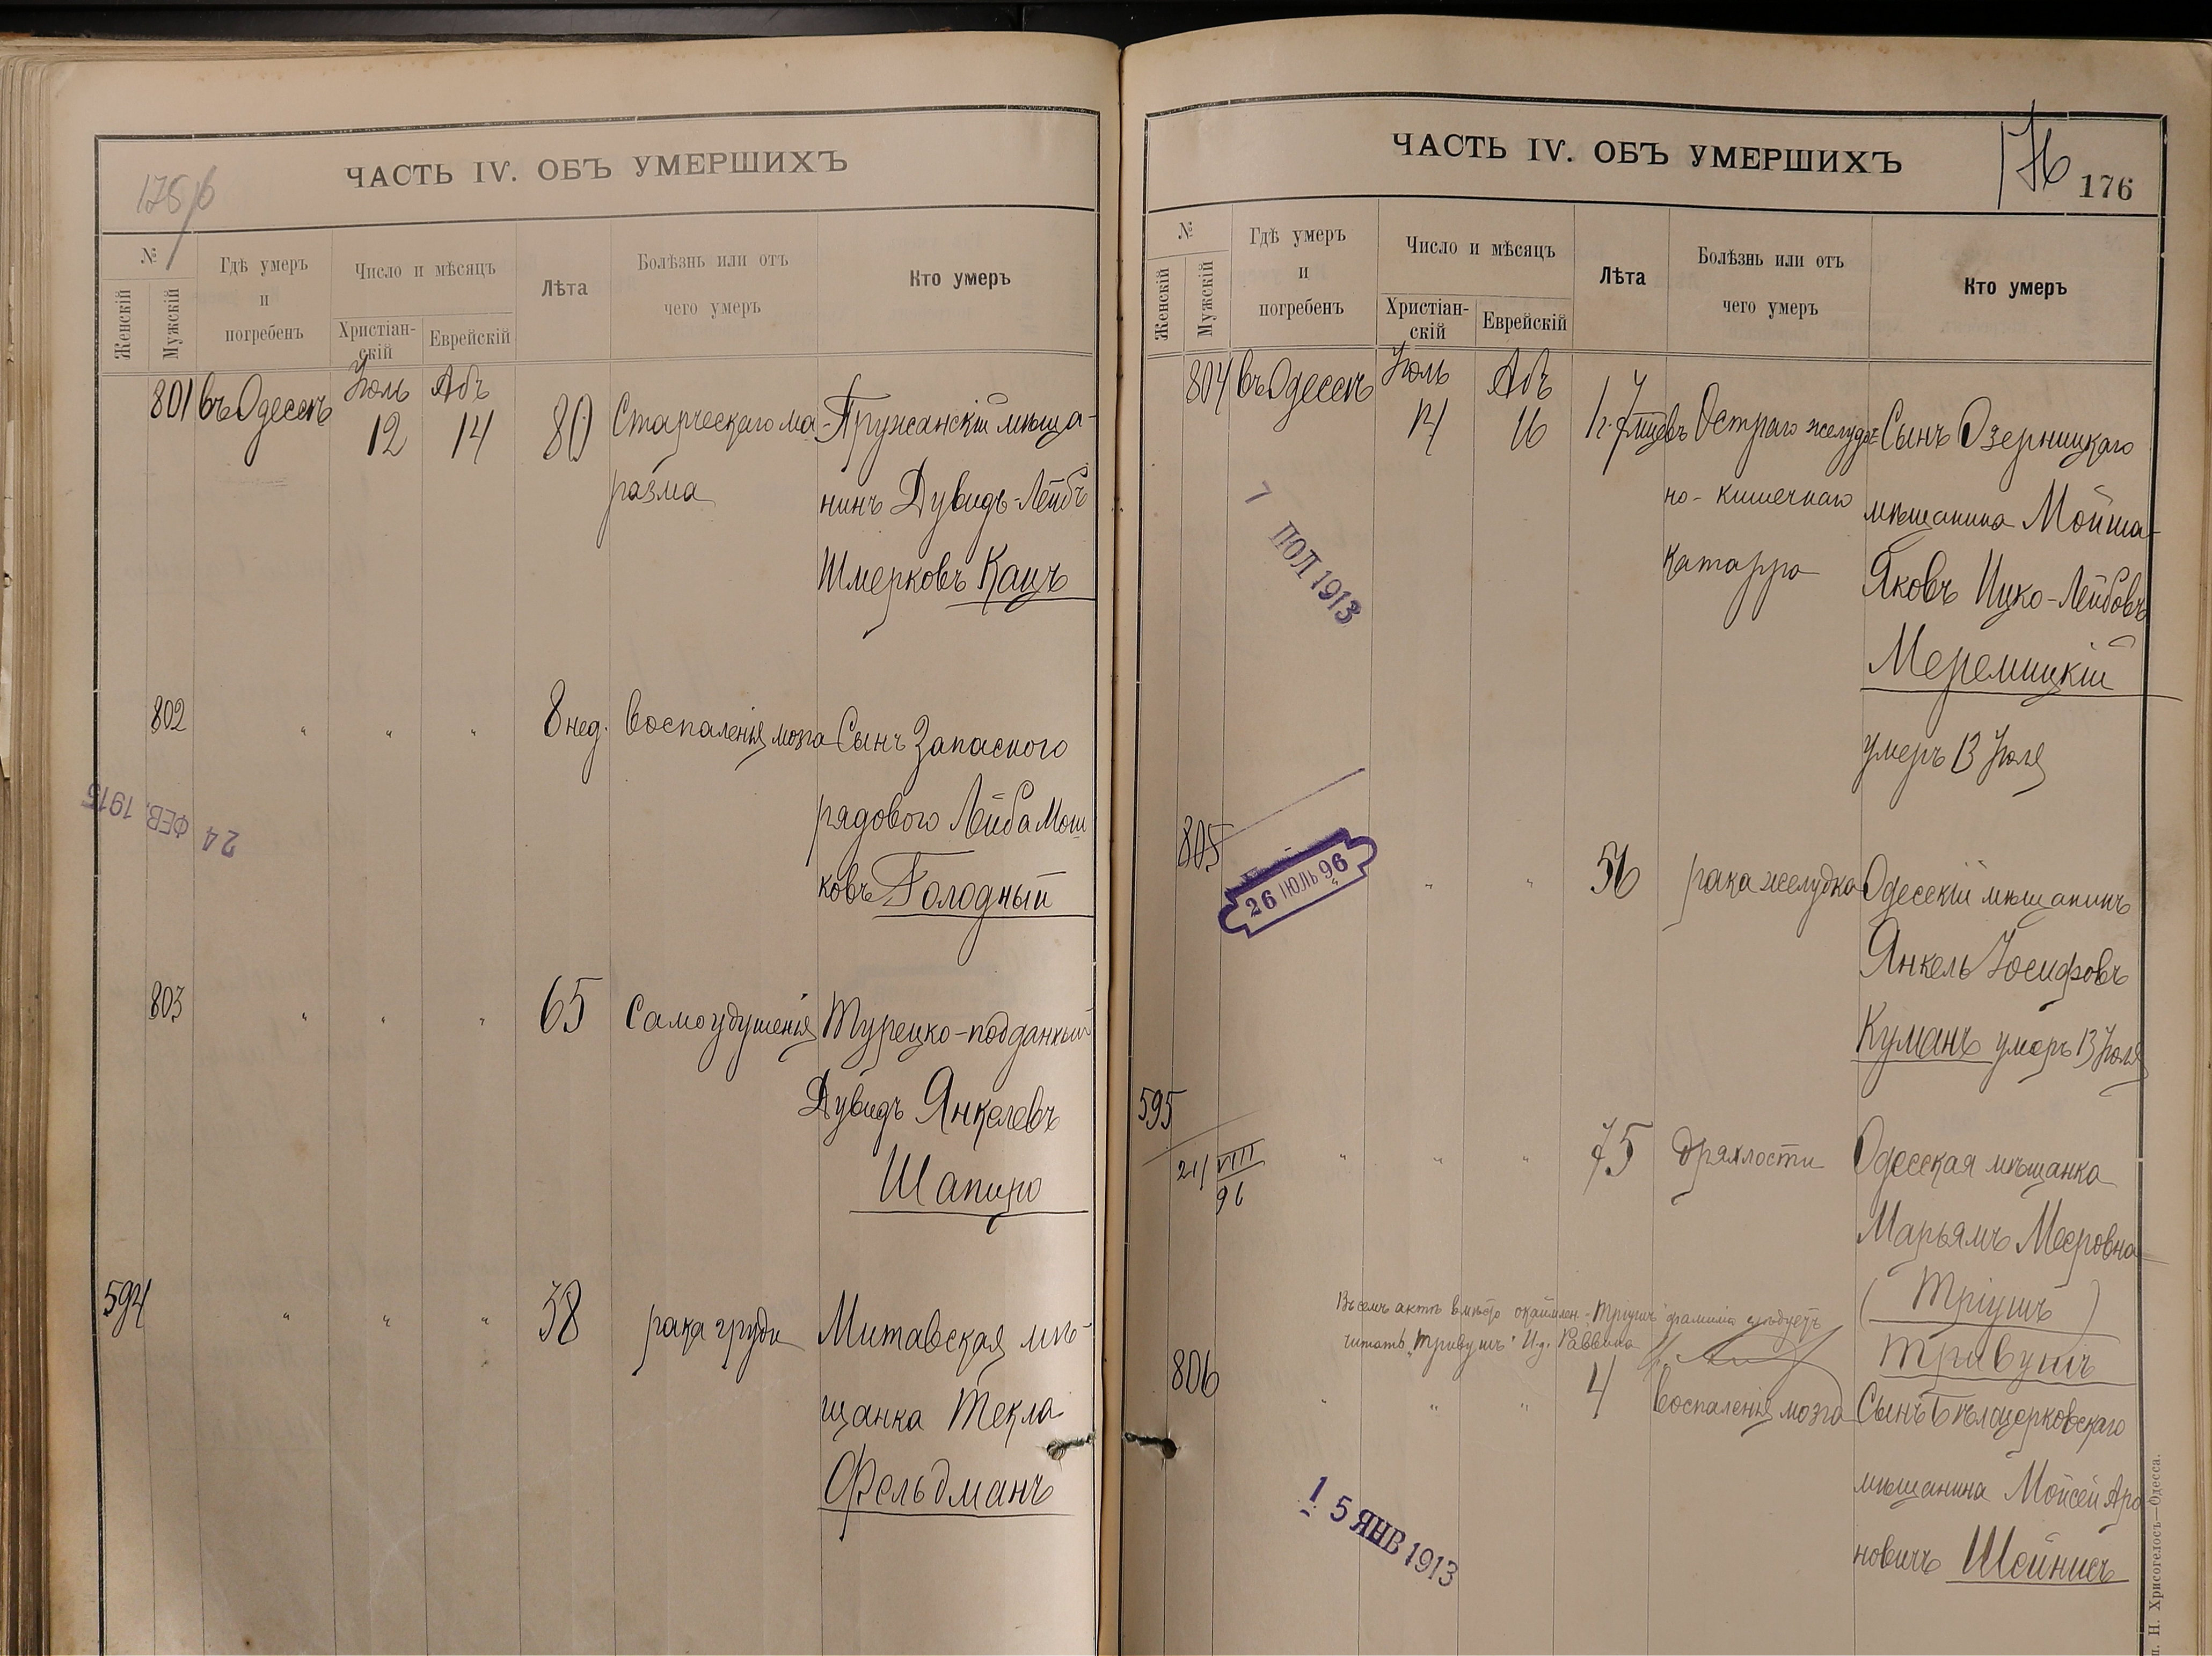 175/6
ЧАСТЬ IV. ОБЪ УМЕРШИХЪ
№
Женскій
Мужскій
Гдѣ умеръ
и
погребенъ
Число и мѣсяцъ
Христіан-
скій
Еврейскій
Лѣта
Болѣзнь или отъ
чего умеръ
Кто умеръ
801 въ Одессѣ Іюль 12 Абъ 14 80 Старческаго ма- Пружанскій мѣща-
разма нинъ Дувидъ-Лейбъ
Шмерковъ Кацъ
802 " " " 8 нед. воспаленія мозга Сынъ Запасного
рядового Лейба Мош
ковъ Голодный
24 ФЕВ. 1915
803 " " " 65 Самоудушенія Турецко-подданный
Дувидъ Янкелевъ
Шапиро
594 " " " 38 рака груди Митавская мѣ-
щанка Текла
Фельдманъ
ЧАСТЬ IV. ОБЪ УМЕРШИХЪ
176
176
№
Женскій
Мужскій
Гдѣ умеръ
и
погребенъ
Число и мѣсяцъ
Христіан-
скій
Еврейскій
Лѣта
Болѣзнь или отъ
чего умеръ
Кто умеръ
804 въ Одессѣ Іюль 14 Абъ 16 1 г. 7 мцевъ Остраго желудоч- Сынъ Озерницкаго
но-кишечнаго мѣщанина Мойша-
катарра Яковъ Ицко-Лейбовъ
Меремицкій
умеръ 13 Іюля
7 ІЮЛ 1913
805 " " " 56 рака желудка Одесскій мѣщанинъ
26 ІЮЛЬ 96
Янкель Іосифовъ
Куманъ умеръ 13 Іюля
595 " " " 75 дряхлости Одесская мѣщанка
21/VIII 96
Марьямъ Мееровна
(Тріушъ)
Въ семъ актѣ вмѣсто "Тріушъ" фамилія слѣдуетъ
читать "Тривушъ" И.д. Раввина
Тривушъ
806 " " " 4 воспаленія мозга Сынъ Бѣлоцерковскаго
мѣщанина Мойсей Аро
новичъ Шейнисъ
15 ЯНВ 1913
п. Н. Хрисогелосъ—Одесса.